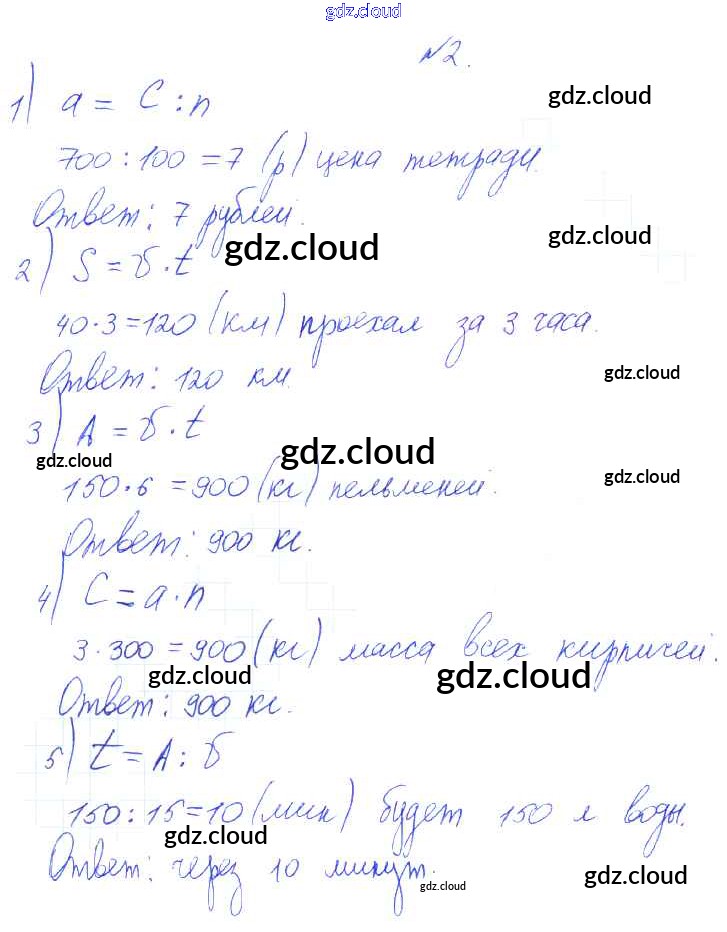 gdz.cloud
№2.
1) a = C : n gdz.cloud
700 : 100 = 7 (р) цена тетради.
Ответ: 7 рублей.
gdz.cloud gdz.cloud
2) S = v · t
40 · 3 = 120 (км) проехал за 3 часа.
Ответ: 120 км. gdz.cloud
3) A = v · t
gdz.cloud gdz.cloud gdz.cloud
150 · 6 = 900 (кг) пельменей.
Ответ: 900 кг.
4) C = a · n
3 · 300 = 900 (кг) масса всех кирпичей.
gdz.cloud gdz.cloud
Ответ: 900 кг.
5) t = A : v
150 : 15 = 10 (мин) будет 150 л воды.
gdz.cloud
Ответ: через 10 минут.
gdz.cloud gdz.cloud